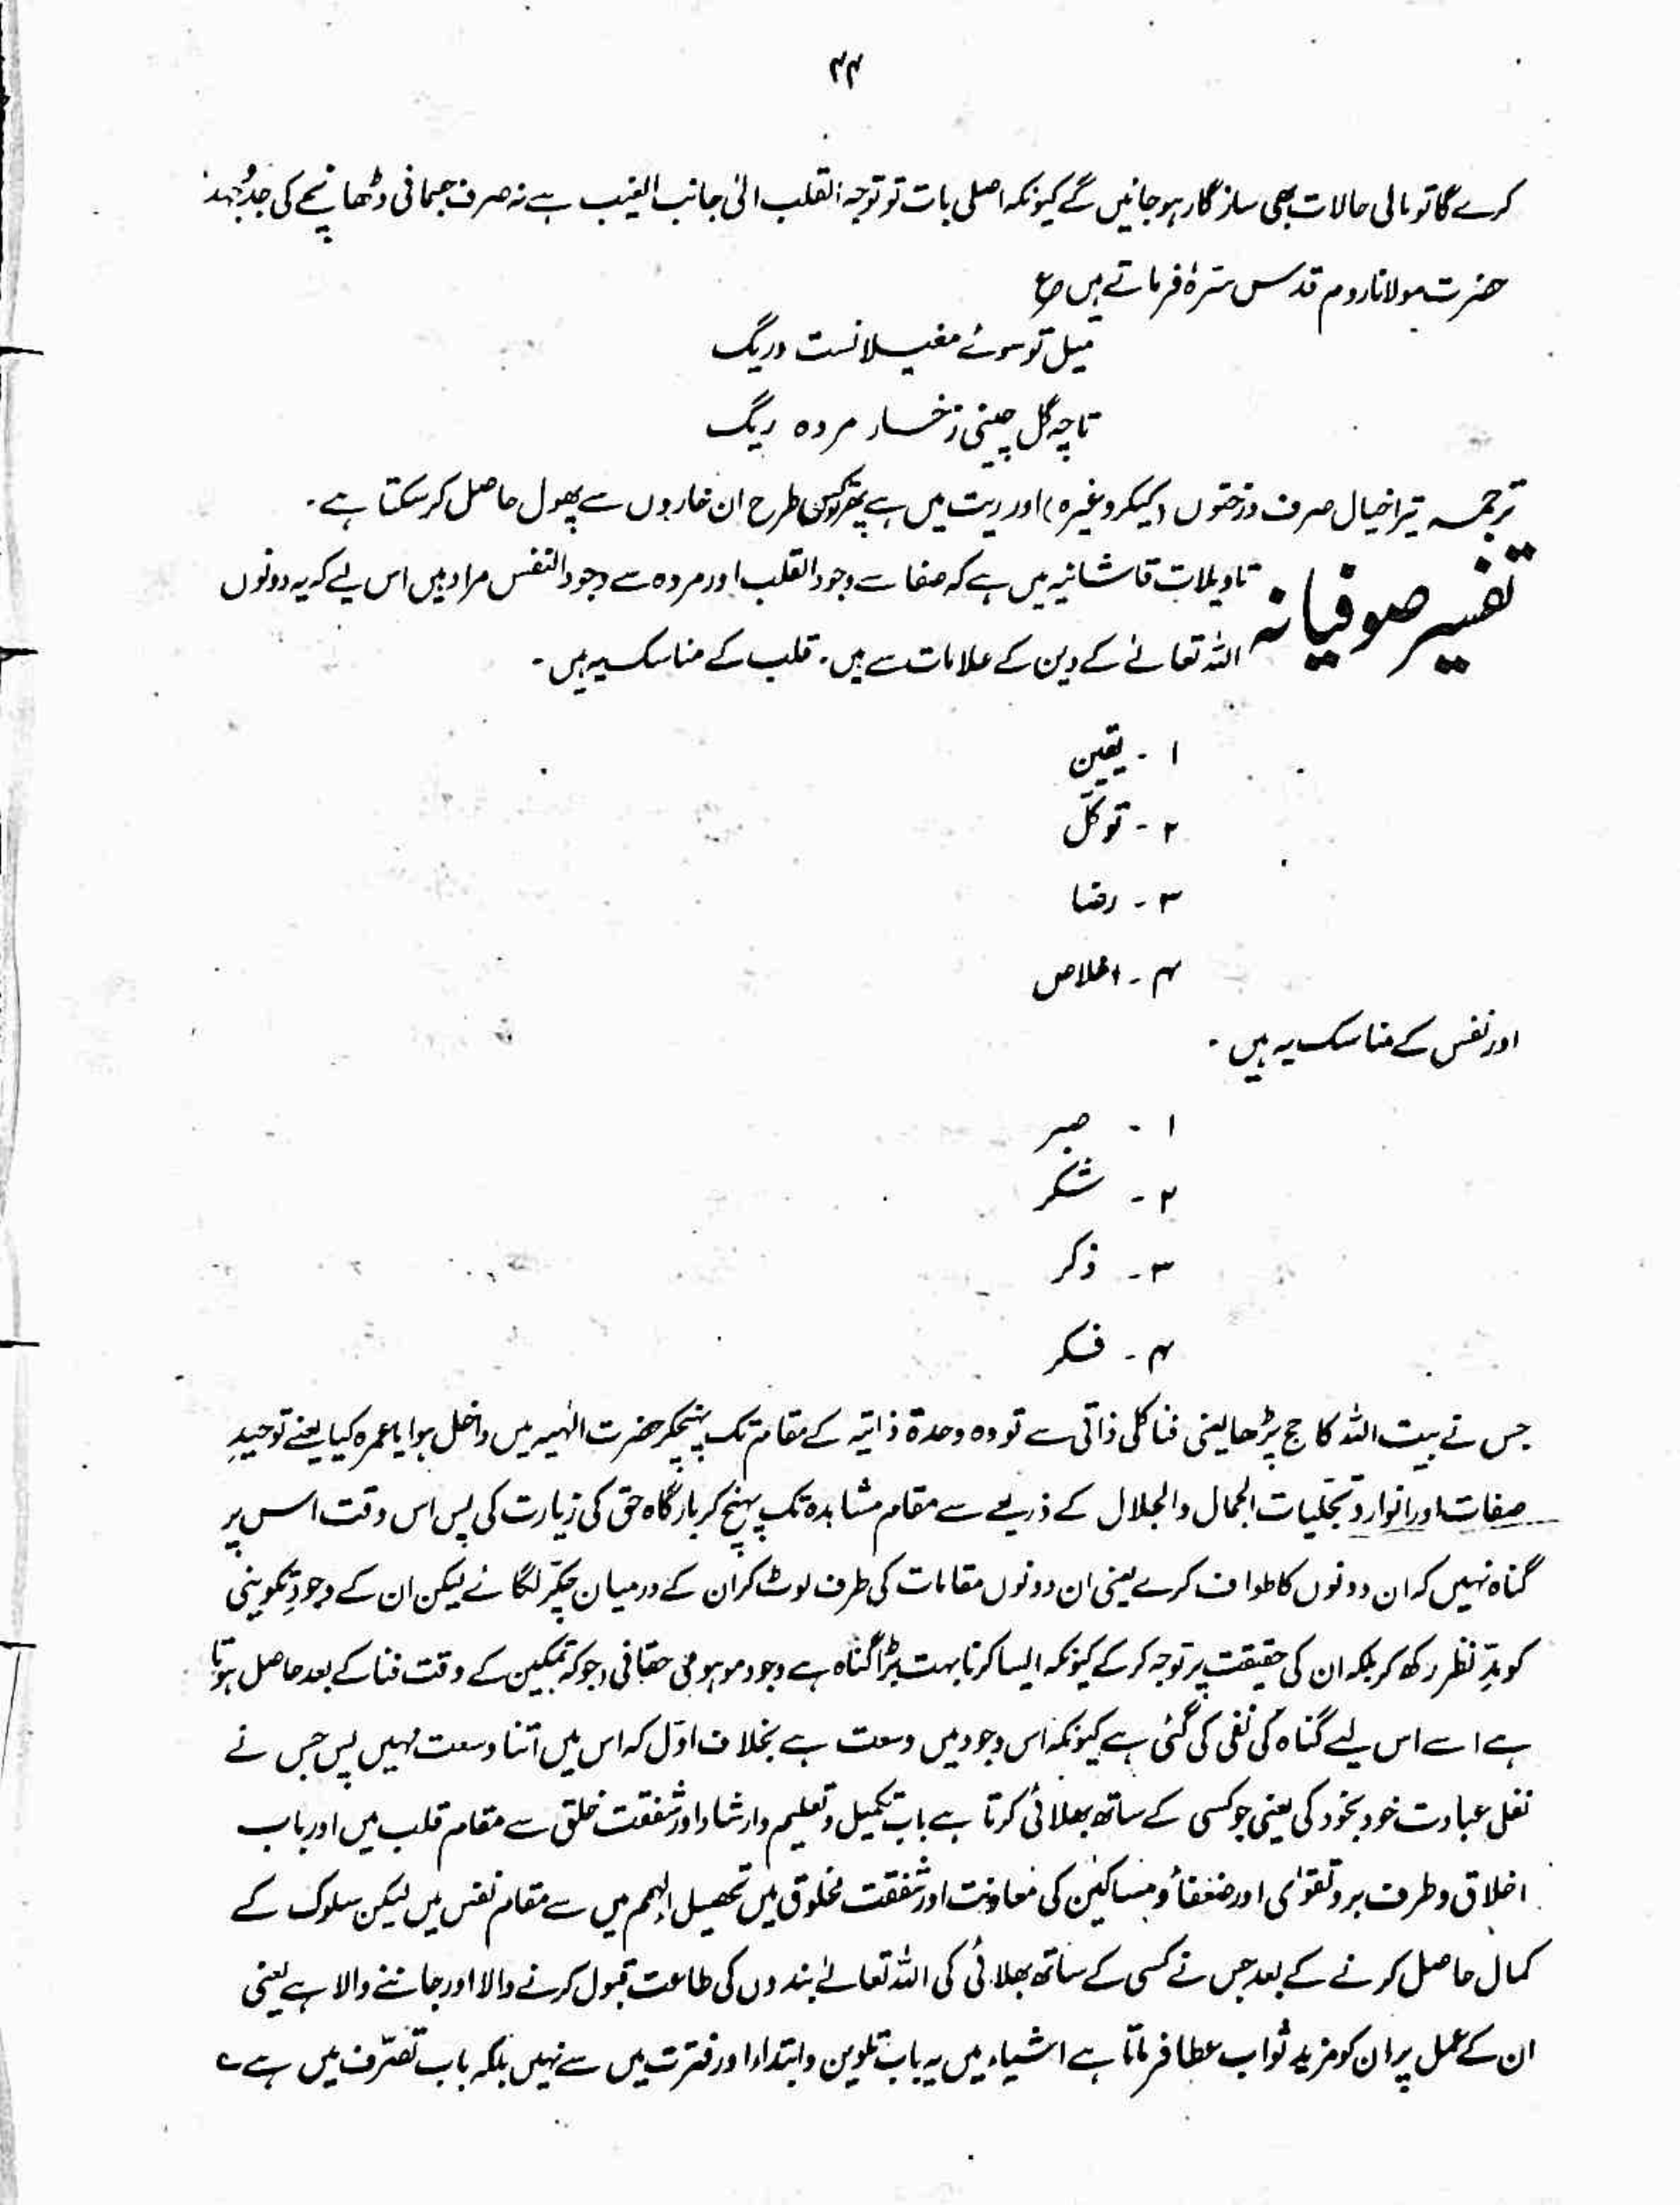 ۴۴
کرے گا تو مالی حالات بھی سازگار ہو جائیں گے کیونکہ اصلی بات تو توجہ القلب الیٰ جانب الغیب ہے نہ صرف جسمانی ڈھانچے کی جدوجہد
حضرت مولانا روم قدس سرہٗ فرماتے ہیں ؏
میل تو سوئے مغیلانست و ریگ
تا چہ گل چینی ز خسار مردہ ریگ
ترجمہ تیرا خیال صرف درختوں (کیکر وغیرہ) اور ریت میں ہے پھر تو کس طرح ان خاروں سے پھول حاصل کر سکتا ہے۔
تفسیر صوفیانہ تاویلات قاشانیہ میں ہے کہ صفا سے وجود القلب اور مروہ سے وجود النفس مراد ہیں اس لیے کہ یہ دونوں
اللہ تعالےٰ کے دین کے علامات سے ہیں۔ قلب کے مناسک یہ ہیں۔
۱ - یقین
۲ - توکّل
۳ - رضا
۴ - اخلاص
اور نفس کے مناسک یہ ہیں۔
۱ - صبر
۲ - شکر
۳ - ذکر
۴ - فکر
جس نے بیت اللہ کا حج پڑھا یعنی فنا کلی ذاتی سے تو وہ وحدۃ ذاتیہ کے مقام تک پہنچکر حضرت الٰہیہ میں داخل ہوا یا عمرہ کیا یعنے توحیدِ
صفات اور انوار و تجلیات الجمال والجلال کے ذریعے سے مقام مشاہدہ تک پہنچ کر بارگاہ حق کی زیارت کی پس اس وقت اس پر
گناہ نہیں کہ ان دونوں کا طواف کرے یعنی ان دونوں مقامات کی طرف لوٹ کر ان کے درمیان چکّر لگائے لیکن ان کے وجودِ تکوینی
کو مدِّ نظر رکھ کر بلکہ ان کی حقیقت پر توجہ کر کے کیونکہ ایسا کرنا بہت بڑا گناہ ہے وجود موہومی حقانی (جو کہ تمکین کے وقت فنا کے بعد حاصل ہوتا
ہے) سے اس لیے گناہ کی نفی کی گئی ہے کیونکہ اس وجود میں وسعت ہے بخلاف اوّل کہ اس میں اتنا وسعت نہیں پس جس نے
نفل عبادت خود بخود کی یعنی جو کسی کے ساتھ بھلائی کرتا ہے باب تکمیل و تعلیم وارشاد اور شفقت خلق سے مقام قلب میں اور باب
اخلاق و طرف بر و تقوٰی اور ضعفأ و مساکین کی معاونت اور شفقت مخلوق میں تحصیل الہم میں سے مقام نفس میں لیکن سلوک کے
کمال حاصل کرنے کے بعد جس نے کسی کے ساتھ بھلائی کی اللہ تعالےٰ بندوں کی طاعت قبول کرنے والا اور جاننے والا ہے یعنی
ان کے عمل پر ان کو مزید ثواب عطا فرماتا ہے اشیاء میں یہ باب تلوین و ابتداء اور فترت میں سے نہیں بلکہ باب تصرّف میں ہے